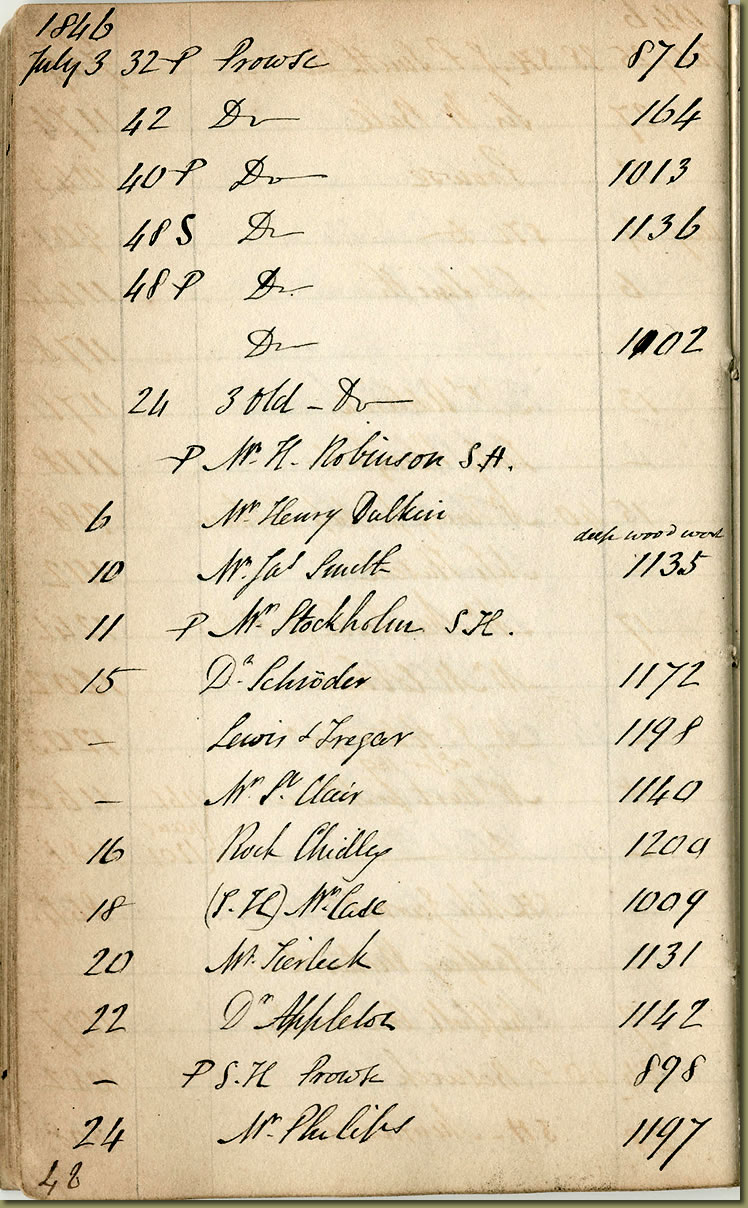 1846
July 3 32 P Prowse 876
42 Do 164
40 P Do 1013
48 S Do 1136
48 P Do
Do 1002
24 3 Old - Do
P Mr. H. Robinson S.H.
6 Mr. Henry Dulkin
deep wood work
10 Mr. Jas Smith 1135
11 P Mr. Stockholm S.H.
15 Dr. Schröder 1172
- Lewis & Tregar 1198
- Mr. St Clair 1140
16 Rock Chidley 1200
18 (S.H) Mr. Case 1009
20 Mr. Tierleck 1131
22 Dr Appleton 1142
- P S.H Prowse 898
24 Mr. Philips 1197
48